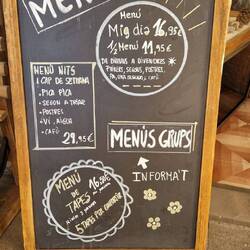 MENÚ
Menú
Mig dia 16,95€
1/2 Menú 11,95€
DE DILLUNS A DIVENDRES
PRIMERS, SEGONS, POSTRES,
PA, UNA BEGUDA, CAFÈ
MENÚ NITS
I CAP DE SETMANA
• PICA PICA
• SEGON A TRIAR
• POSTRES
• VI, AIGUA
• CAFÈ
29,95€
MENÚS GRUPS
INFORMA'T
MENÚ
DE 16,90€
TAPES
5 TAPES PER COMPARTIR